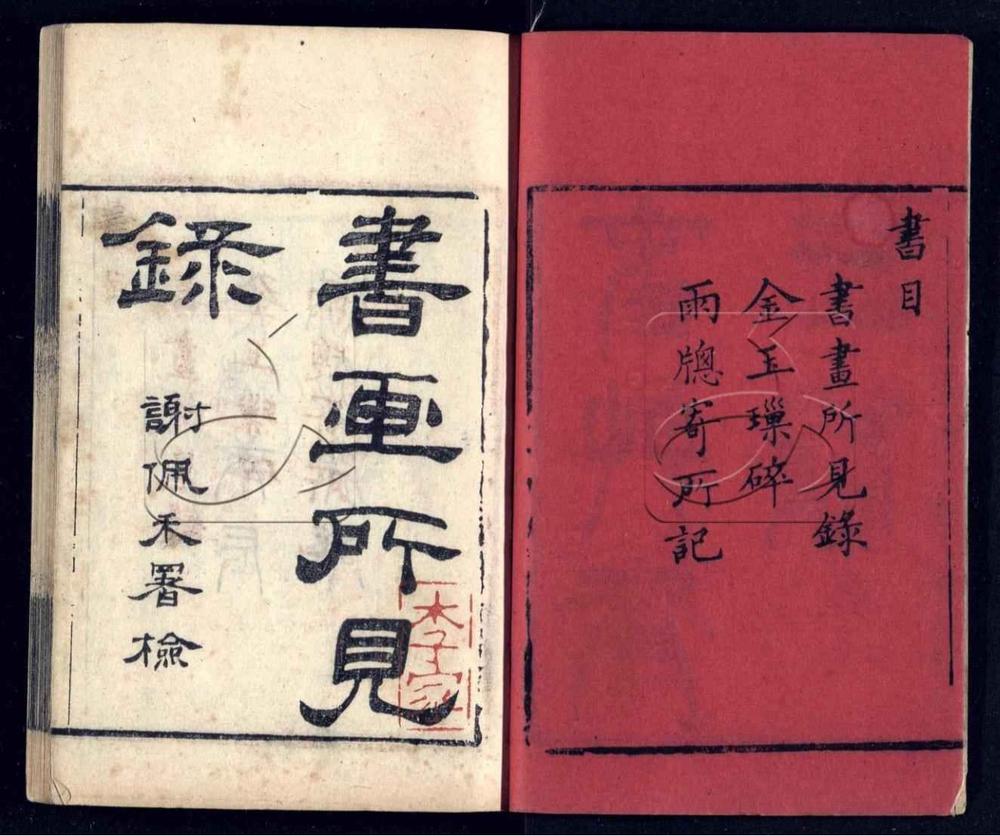 書目
書畫所見錄
金玉璅碎
雨牕寄所記
書画所見
錄
謝佩禾署檢
李家